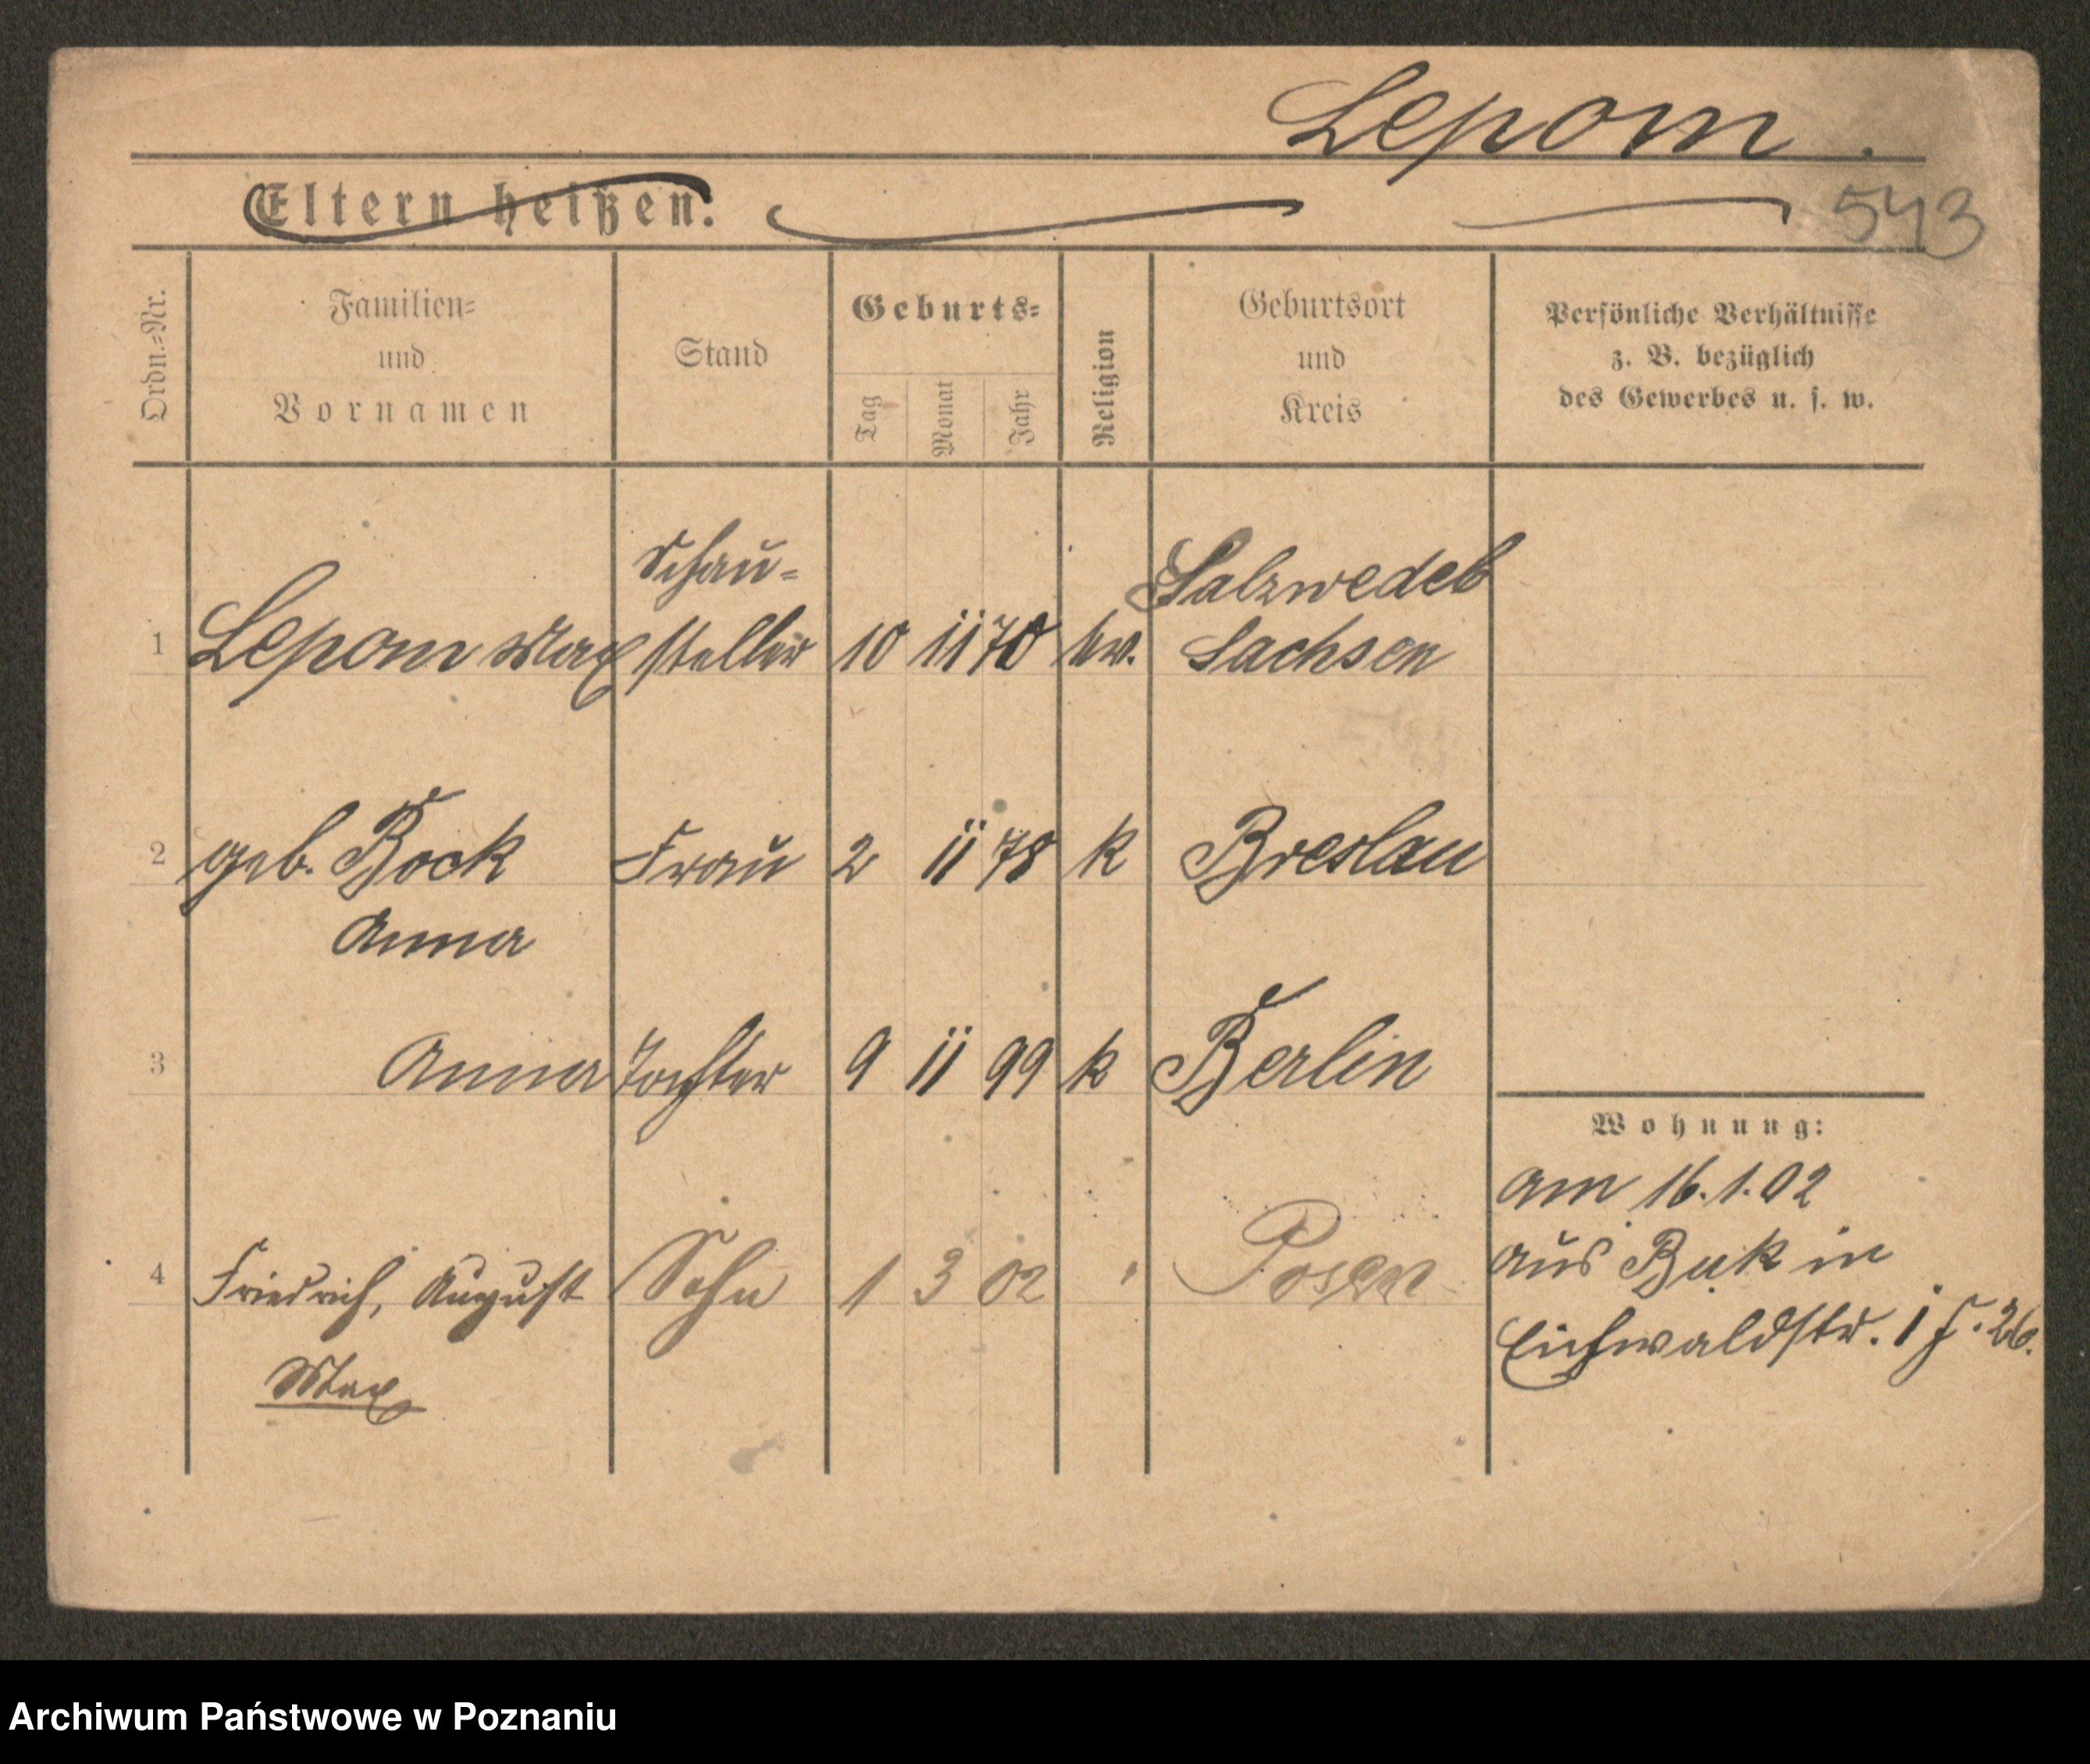 Lepom.
Eltern heißen:
543
Ordn.=Nr.
Familien=
und
Vornamen
Stand
Geburts=
Tag
Monat
Jahr
Religion
Geburtsort
und
Kreis
Persönliche Verhältnisse
z. B. bezüglich
des Gewerbes u. s. w.
Schau=
Salzwedel
1 Lepom Max steller 10 11 70 ev. Sachsen
2 geb. Bock Frau 2 11 78 k Breslau
Anna
3 Anna Tochter 9 11 99 k Berlin
Wohnung:
am 16.1.02
aus Buk in
4 Friedrich, August Sohn 1 3 02 " Posen
Eichwaldstr. 26.
Max
Archiwum Państwowe w Poznaniu